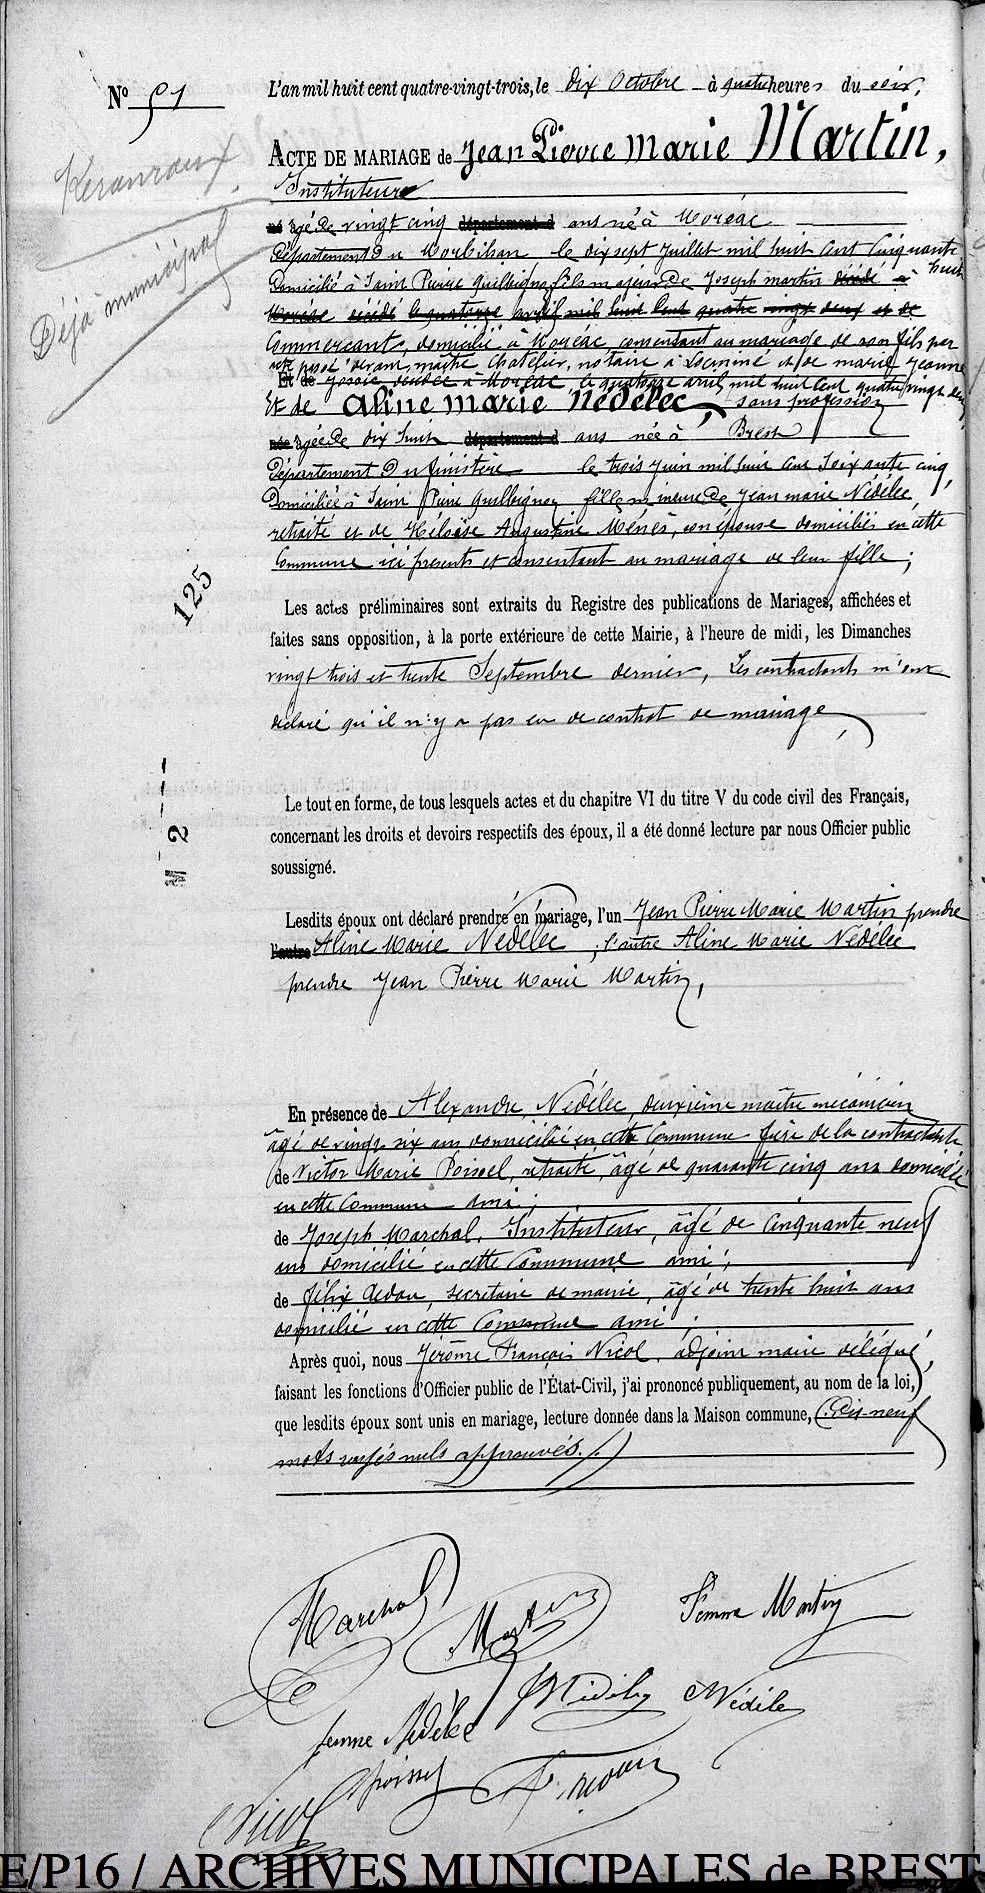 N° 51
L'an mil huit cent quatre-vingt-trois, le dix Octobre à quatre heures du soir,
Keranroux
ACTE DE MARIAGE de Jean Pierre Marie Martin,
Instituteur
âgé de vingt cinq département d ans né à Moréac
Département du Morbihan le dix sept Juillet mil huit cent cinquante huit
Déjà municipal
Domicilié à Saint Pierre Quilbignon fils majeur de Joseph Martin décédé à
Moréac décédé le quatorze avril mil huit cent quatre vingt deux et de
Commerçant, domicilié à Moréac, consentant au mariage de son fils par
acte passé devant maître Chatelier, notaire à Locminé et de Marie Jeanne
décédée à Moréac le quatorze avril mil huit cent quatre vingt deux
Et de Aline Marie Nédélec, sans profession
née âgée de dix huit département d ans née à Brest
Département du Finistère le trois Juin mil huit cent soixante cinq,
Domiciliée à Saint Pierre Quilbignon fille mineure de Jean Marie Nédélec,
retraité et de Héloïse Augustine Ménès, son épouse domiciliés en cette
Commune ici présents et consentant au mariage de leur fille ;
125
Les actes préliminaires sont extraits du Registre des publications de Mariages, affichées et
faites sans opposition, à la porte extérieure de cette Mairie, à l'heure de midi, les Dimanches
vingt trois et trente Septembre dernier, Les contractants m'ont
déclaré qu'il n'y a pas eu de contrat de mariage,
M 2
Le tout en forme, de tous lesquels actes et du chapitre VI du titre V du code civil des Français,
concernant les droits et devoirs respectifs des époux, il a été donné lecture par nous Officier public
soussigné.
Lesdits époux ont déclaré prendre en mariage, l'un Jean Pierre Marie Martin prendre
l'autre Aline Marie Nédélec, l'autre Aline Marie Nédélec
prendre Jean Pierre Marie Martin,
En présence de Alexandre Nédélec, deuxième maître mécanicien
âgé de vingt six ans domicilié en cette Commune frère de la contractante
de Victor Marie Poissel, retraité, âgé de quarante cinq ans domicilié
en cette Commune ami ;
de Joseph Marchal, Instituteur, âgé de cinquante neuf
ans domicilié en cette Commune ami ;
de Félix secrétaire de mairie, âgé de trente huit ans
domicilié en cette Commune ami ;
Après quoi, nous Jérôme François Nicol, adjoint maire délégué,
faisant les fonctions d'Officier public de l'État-Civil, j'ai prononcé publiquement, au nom de la loi,
que lesdits époux sont unis en mariage, lecture donnée dans la Maison commune, (Dix-neuf
mots rayés nuls approuvés./.)
Marchal Martin Femme Martin
Nédélec Nédélec
femme Nédélec
Nicol
E/P16 / ARCHIVES MUNICIPALES de BREST